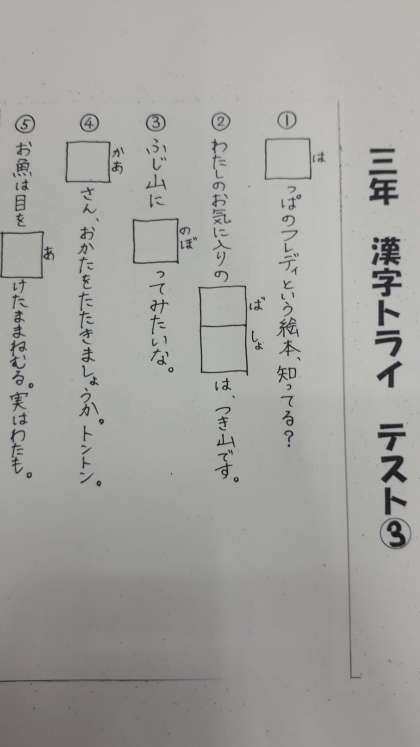 三年 漢字トライ テスト③
① □っぱのフレディという絵本、知ってる？
は
② わたしのお気に入りの□□は、つき山です。
ばしょ
③ ふじ山に□ってみたいな。
のぼ
④ □さん、おかたをたたきましょうか。トントン。
かあ
⑤ お魚は目を□けたままねむる。実はわたしも。
あ